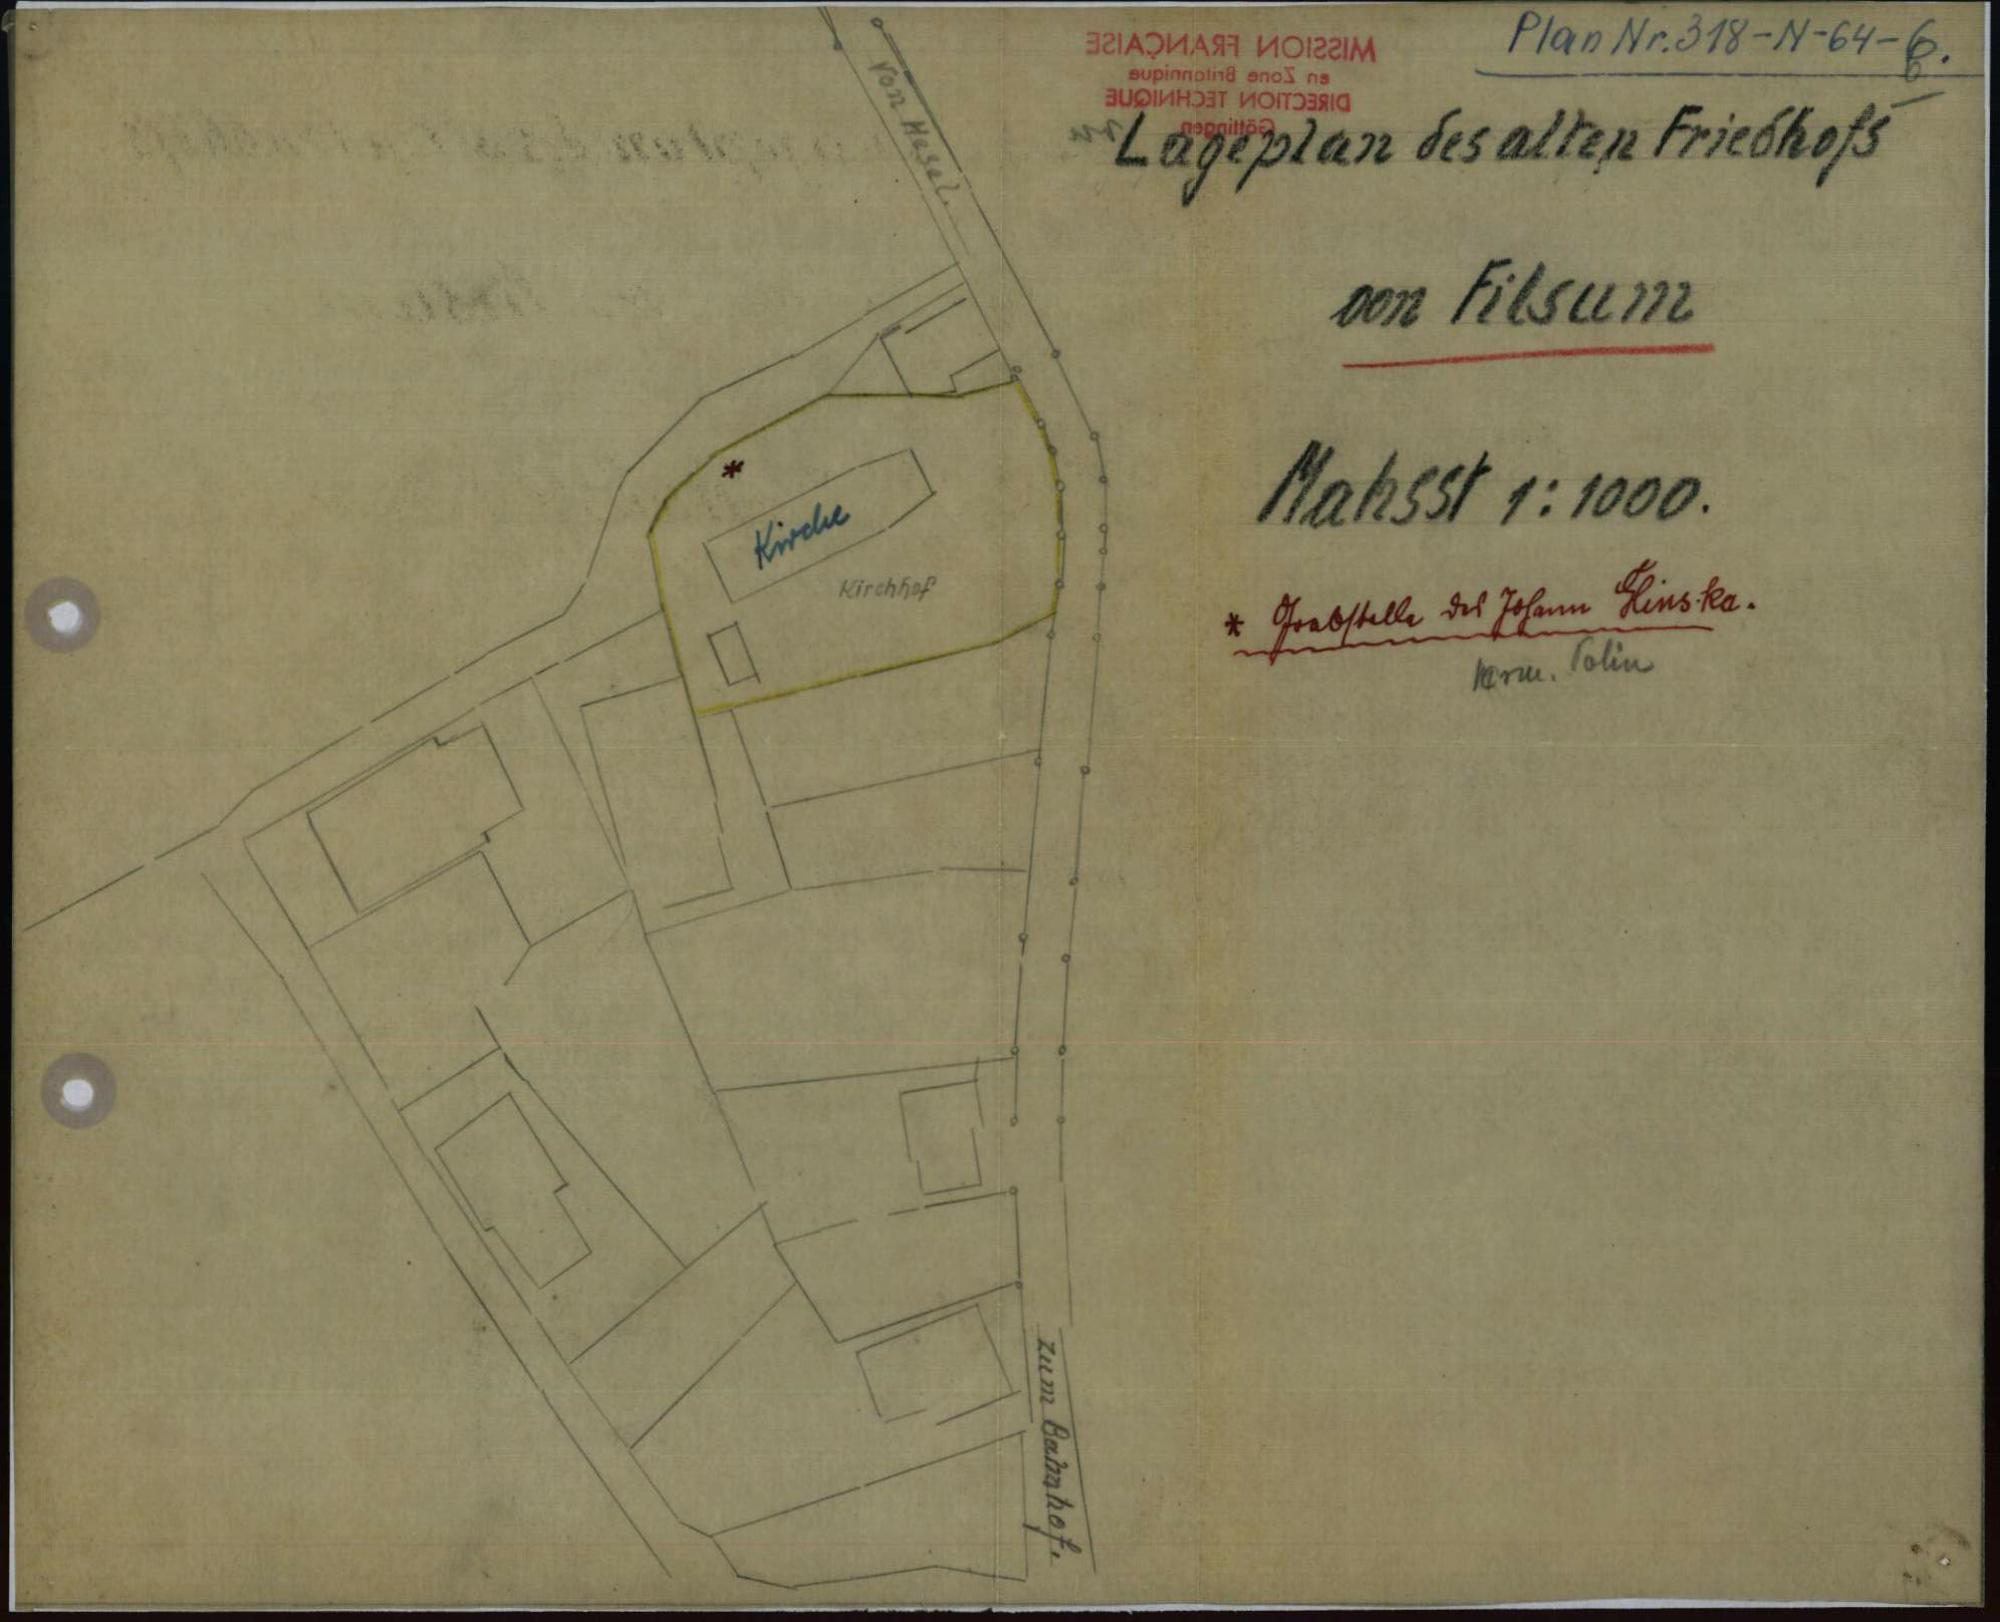 Plan Nr. 318-N-64-6.
MISSION FRANÇAISE
en Zone Britannique
DIRECTION TECHNIQUE
Göttingen
Lageplan des alten Friedhofs
von Filsum
Mahsst 1:1000.
* Grabstelle des Johann
Polin
von Hesel.
Kirche
Kirchhof
zum Bahnhof.